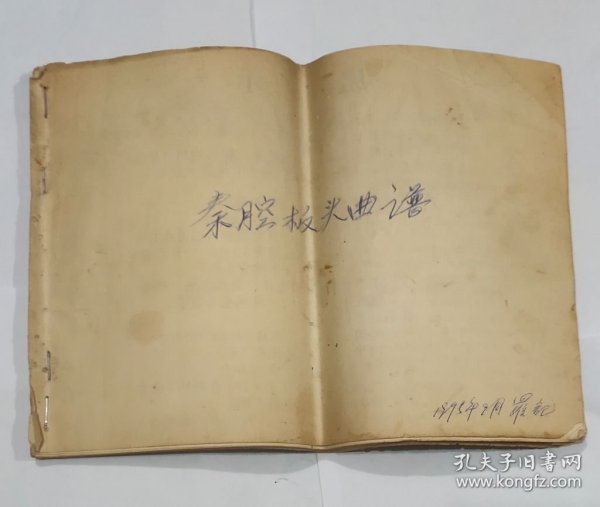 秦腔板头曲谱
年 月
孔夫子旧书网
www.kongfz.com